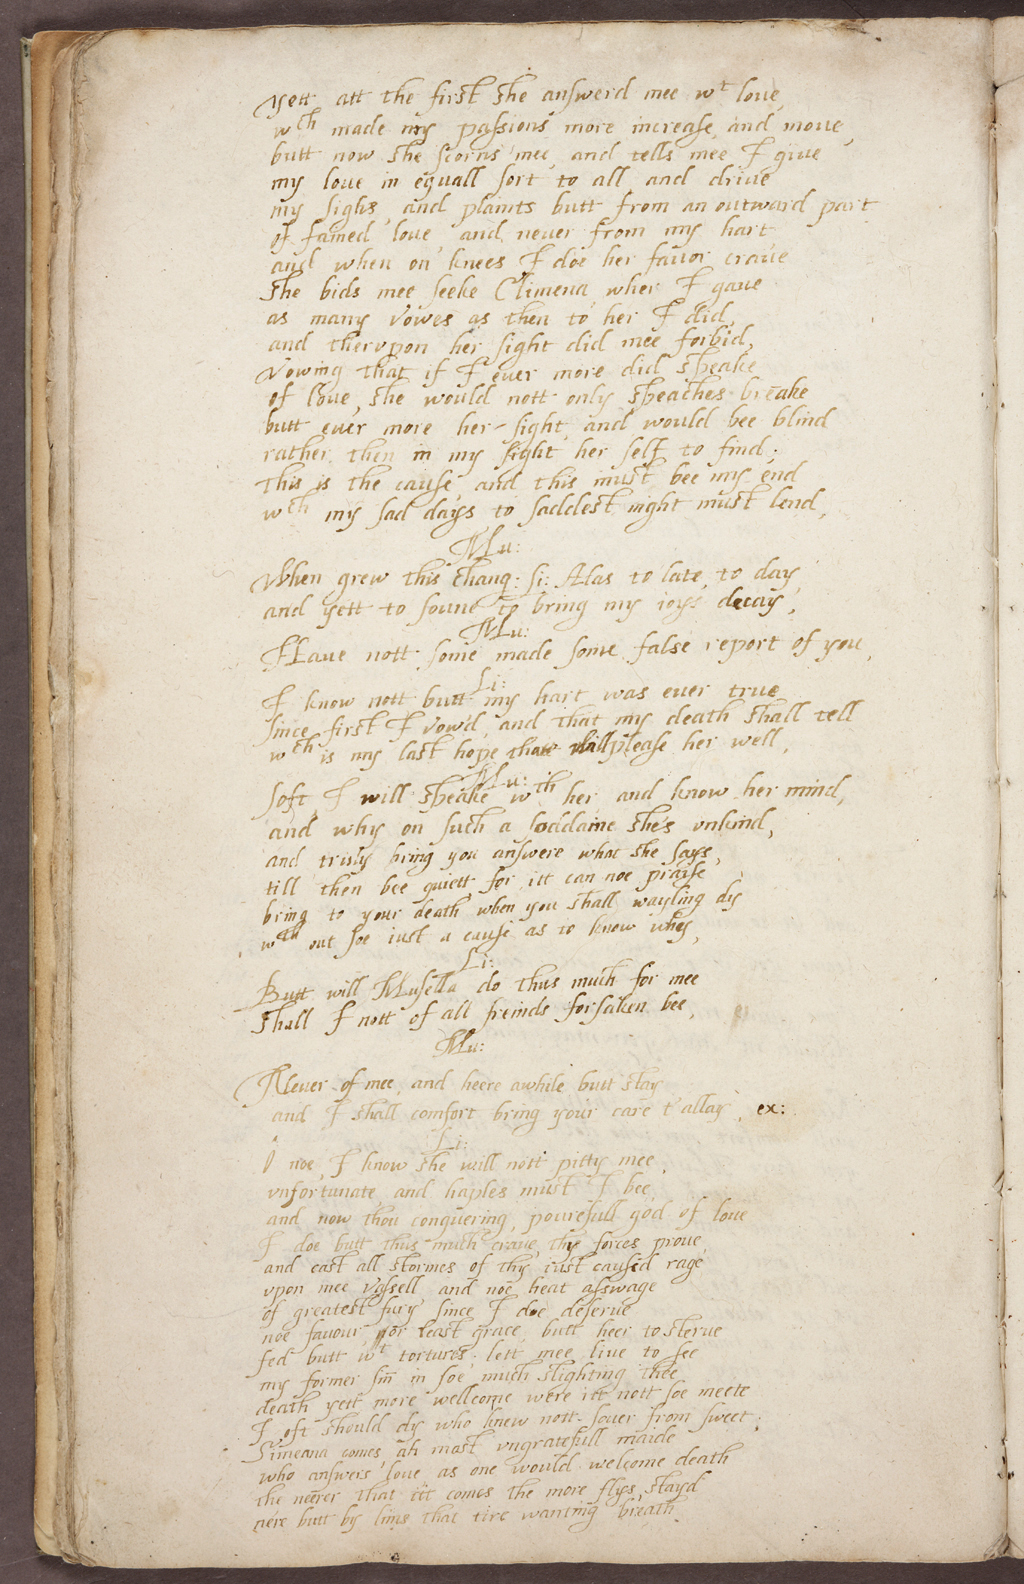 Yett att the first she answerd mee wt loue,
wch made my passions more increase, and moue,
butt now she scorns mee, and tells mee I giue
my loue in equall sort to all, and driue
my sighs, and plaints butt from an outward part
of fained loue, and neuer from my hart
and when on knees I doe her fauor craue
she bids mee seeke Climena, wher I gaue
as many vowes as then to her I did,
and thervpon her sight did mee forbid,
Vowing that if I euer more did speake
of loue, she would nott only speaches breake
butt euer more her sight, and would bee blind
rather then in my sight her self to find;
This is the cause, and this must bee my end
wch my sad days to saddest night must lend,
Mu:
When grew this chang: Si: Alas to late, to day
and yett to soune to bring my ioys decay,
Mu:
Haue nott some made some false report of you,
Li:
I know nott butt my hart was euer true
since first I vow'd, and that my death shall tell
wch is my last hope that will please her well,
Mu:
Soft, I will speake wth her and know her mind,
and why on such a soddaine she's vnkind,
and truly bring you answere what she says,
till then bee quiett, for itt can noe praise
bring to your death when you shall wayling dy
wth out soe iust a cause as to know whey,
Li:
Butt will Musella do thus much for mee
shall I nott of all freinds forsaken bee,
Mu:
Neuer of mee, and heere awhile butt stay
and I shall comfort bring your care t'allay, ex:
Li:
O noe, I know she will nott pitty mee,
vnfortunate, and haples must I bee,
and now thou conquering, powrefull god of loue
I doe butt thus much craue, thy forces proue,
and cast all stormes of thy iust caused rage
vpon mee vassell, and noe heat asswage
of greatest fury since I doe deserue
noe fauour, nor least grace, butt heer to sterue
fed butt wt tortures; lett mee liue to see
my former sin in soe much slighting thee
death yett more wellcome were itt nott soe meete
I oft should dy who knew nott sower from sweet;
Simeana comes, ah most vngratefull maide
who answers loue as one would wellcome death
the neerer that itt comes the more flys, stayd
nere butt by lims that tire wanting breath.